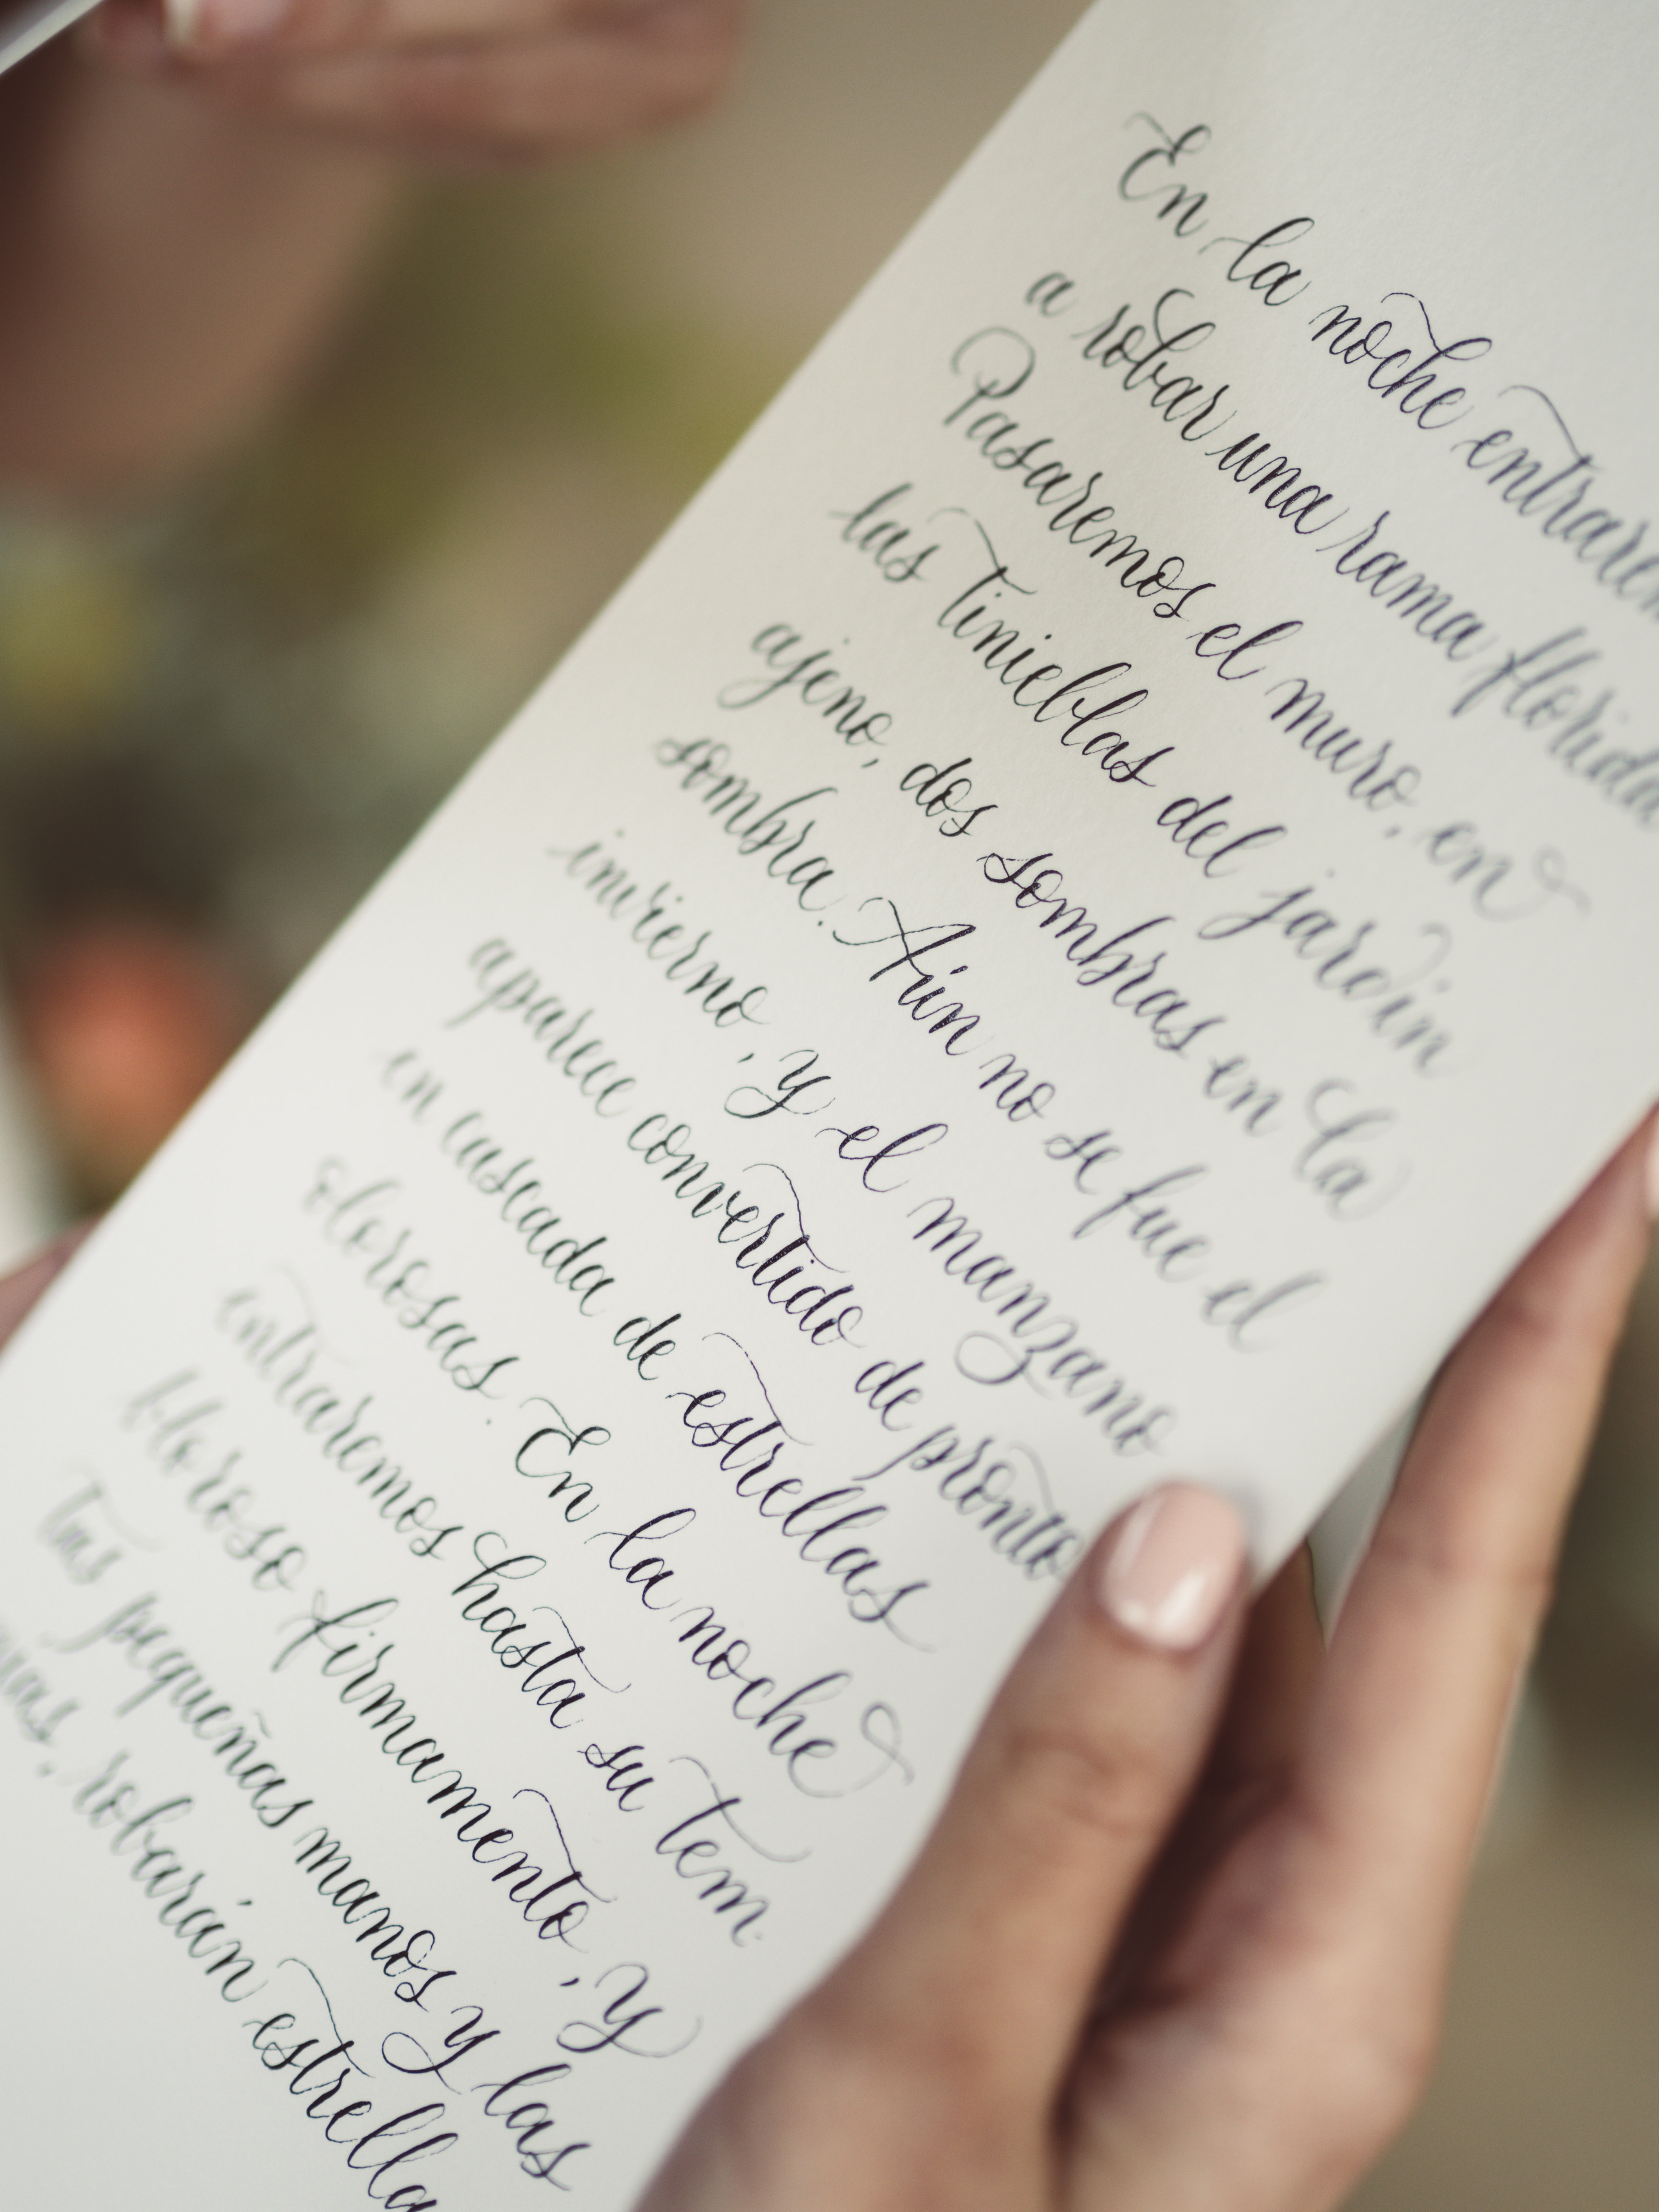 En la noche entrarem
a robar una rama florida
Pasaremos el muro, en
las tinieblas del jardín
ajeno, dos sombras en la
sombra. Aún no se fue el
invierno, y el manzano
aparece convertido de pronto
en cascada de estrellas
olorosas. En la noche
entraremos hasta su tem-
bloroso firmamento, y
tus pequeñas manos y las
mías, robarán estrella